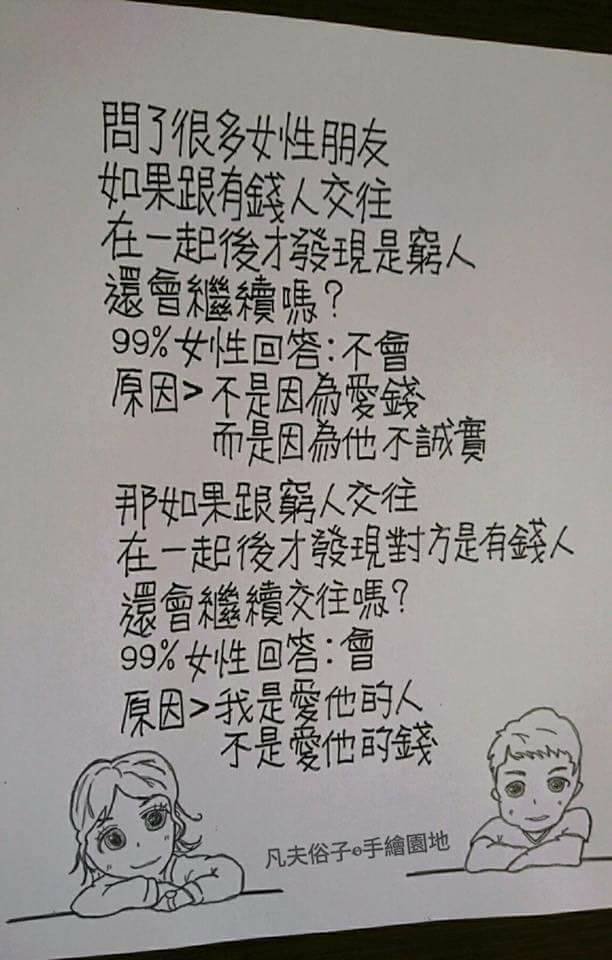 問了很多女性朋友
如果跟有錢人交往
在一起後才發現是窮人
還會繼續嗎？
99%女性回答：不會
原因>不是因為愛錢
而是因為他不誠實
那如果跟窮人交往
在一起後才發現對方是有錢人
還會繼續交往嗎？
99%女性回答：會
原因>我是愛他的人
不是愛他的錢
凡夫俗子の手繪園地